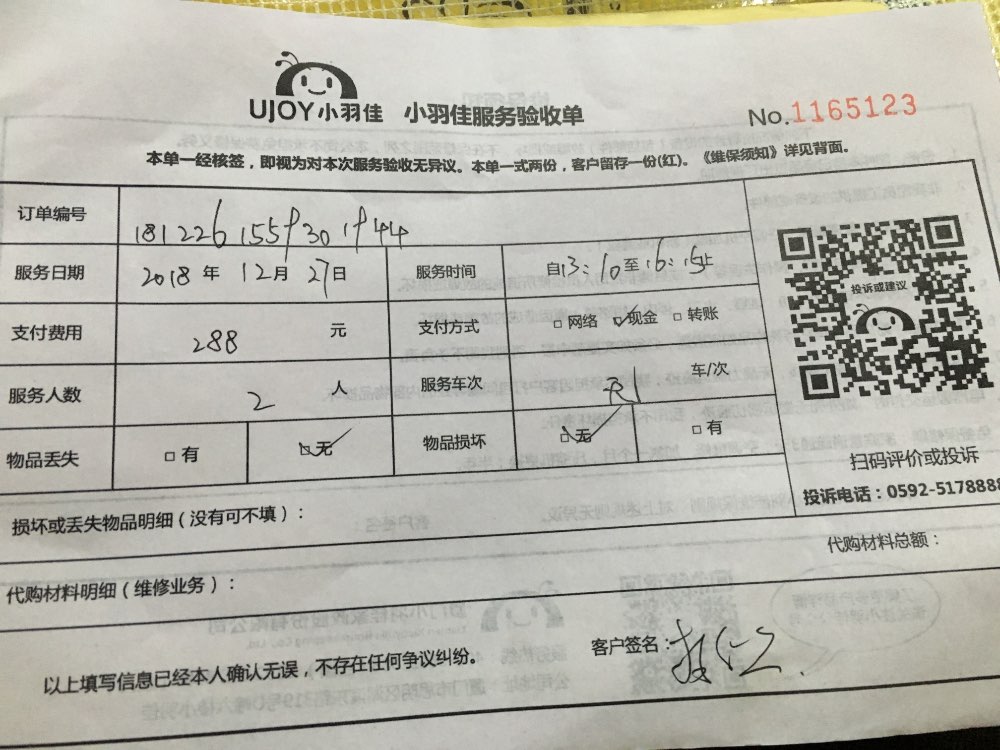 UJOY小羽佳 小羽佳服务验收单
No.1165123
本单一经核签，即视为对本次服务验收无异议。本单一式两份，客户留存一份(红)。《维保须知》详见背面。
订单编号
服务日期 2018 年 12月 27日 服务时间 自13:10至16:15止
支付费用 288 元 支付方式 □网络 ☑现金 □转账
服务人数 2 人 服务车次 车/次
物品丢失 □有 ☑无 物品损坏 ☑无 □有
投诉或建议
扫码评价或投诉
投诉电话：0592-5178888
损坏或丢失物品明细（没有可不填）：
代购材料明细（维修业务）： 代购材料总额：
以上填写信息已经本人确认无误，不存在任何争议纠纷。 客户签名：